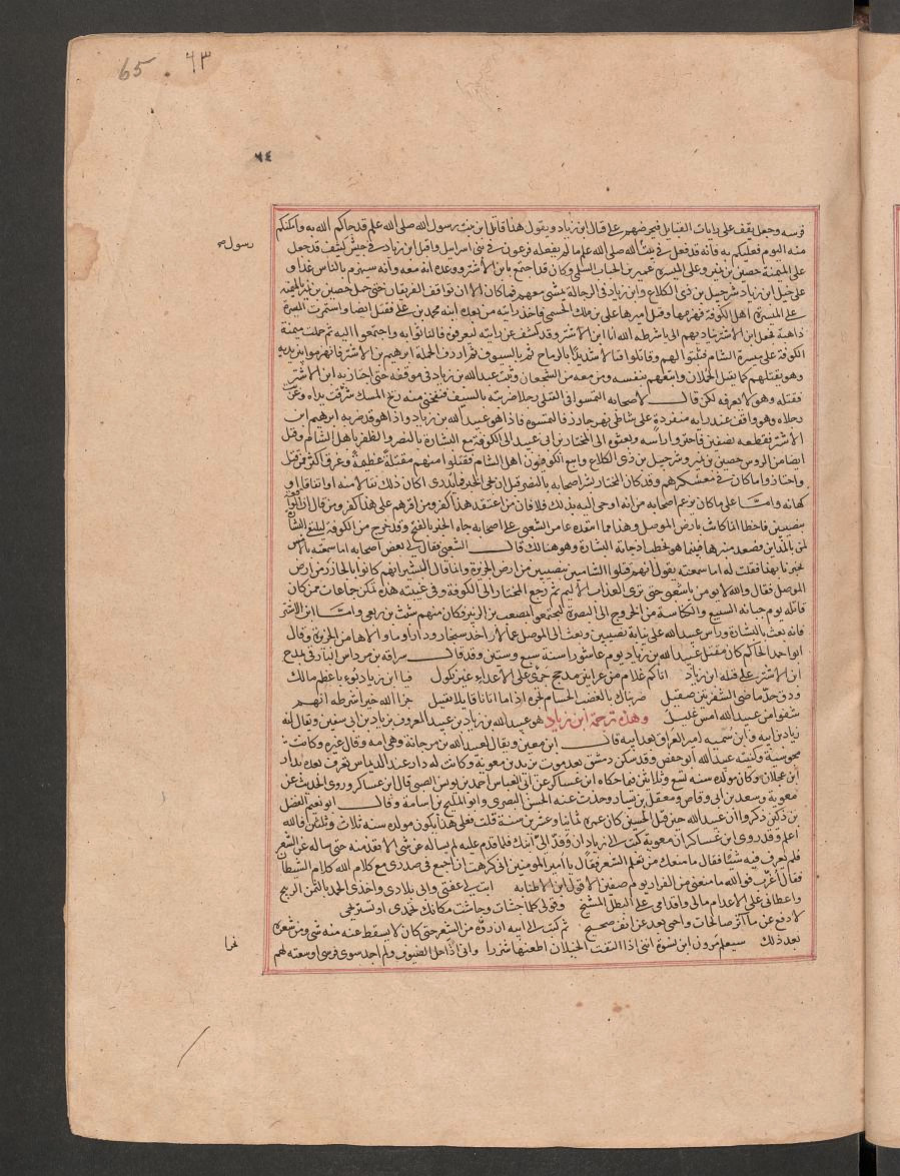 65 . ٦٣
٦٤
فرسه وجعل يقف على رايات القبايل فيحرضهم على قتال ابن زياد ويقول هذا قاتل ابن بنت رسول الله صلى الله علم قد جاكم الله به وامكنكم
رسول
منه اليوم فعليكم به فانه قد فعل في بنت الله صلى الله علم ما لم يفعله فرعون في بني اسرايل واقبل ابن زياد في جيش كثيف قد جعل
على الميمنة حصين بن نمير وعلى الميسرة عمير بن الحباب السلمي وكان قد اجتمع بابن الاشتر ووعده انه معه وانه سينهزم بالناس غدا و
على خيل ابن زياد شرحبيل بن ذى الكلاع وابن زياد في الرجالة يمشى معهم فما كان الا ان تواقف الفريقان حتى حمل حصين بن نمير بالميمنه
على الميسرة اهل الكوفة فهزمها وقتل اميرها على بن ملك الجشمي فاخذ رايته من بعده ابنه محمد بن على فقتل ايضا واستمرت الميسرة
ذاهبة فجعل ابن الاشتر يناديهم الى يا شرطه الله انا ابن الاشتر وقد كشف عن راسه ليعرفوه فالتاثوا به واجتمعوا اليه ثم حملت ميمنة
الكوفة على ميسرة الشام فثبتوا لهم وقاتلوا قتالا شديدا بالرماح ثم بالسيوف ثم اردف الحملة ابرهيم بن الاشتر فانهزموا بين يديه
وهو يقتلهم كما يقتل الحملان واتبعهم بنفسه ومن معه من الشجعان وثبت عبيد الله بن زياد في موقفه حتى اجتاز به ابن الاشتر
فقتله وهو لا يعرفه لكن قال لاصحابه التمسوا في القتلى رجلا ضربته بالسيف فنفحتني منه ريح المسك شرقت يداه وغربت
رجلاه وهو واقف عند راية منفردة على شاطى نهر خازر فالتمسوه فاذا هو عبيد الله بن زياد واذا هو قد ضربه ابرهيم ابن
الاشتر فقطعه نصفين فاحتزوا راسه وبعثوه الى المختار بن ابى عبيد الى الكوفة مع البشارة بالنصر والظفر باهل الشام وقتل
ايضا من الروس حصين بن نمير وشرحبيل بن ذى الكلاع واتبع الكوفيون اهل الشام فقتلوا منهم مقتلة عظيمة وغرق اكثر ممن قتل
واحتازوا ما كان في معسكرهم وقد كان المختار بشر اصحابه بالنصر قبل ان يجى الخبر فما ندرى اكان ذلك تفالا منه او اتفاقا او
كهانه واما على ما كان يزعم اصحابه من انه اوحى اليه بذلك فلا فان من اعتقد هذا كفر ومن اقرهم على هذا كفر ومن قال ان الوقعة
بنصيبين فاخطا انما كانت بارض الموصل وهذا مما انتقده عامر الشعبي على اصحابه جاه الخبر بالفتح وقد خرج من الكوفة ليلتقي البشارة
لمن بالمداين فصعد منبرها فبينما هو يخطب اذ جاته البشارة وهو هنالك قال الشعبي فقال لي بعض اصحابه اما سمعته بالامس
يخبرنا بهذا فقلت له اما سمعته يقول انهم قتلوا الشاميين بنصيبين من ارض الجزيرة وانما قال البشير انهم كانوا بالخازر من ارض
الموصل فقال والله لا يومن يا شعبى حتى ترى العذاب الاليم ثم رجع المختار الى الكوفة وفي غيبته هذه تمكن جماعات ممن كان
قاتله يوم جبانة السبيع والكناسة من الخروج الى البصرة ليجتمعوا بمصعب بن الزبير فكان منهم شبث بن ربعى واما ابن الاشتر
فانه بعث بالبشارة وراس عبيد الله على نيابة نصيبين وبعث الى الموصل عمالا واخذ سنجار ودارا وما والاها من الجزيرة وقال
ابو احمد الحاكم كان مقتل عبيد الله بن زياد يوم عاشورا سنة سبع وستين وقد قال سراقه بن مرداس البارقى يمدح
ابن الاشتر على قتله ابن زياد اتاكم غلام من عرانين مذحج جرى على الاعداء غير نكول فيا ابن زياد بؤ باعظم مالك
وذق حد ماضى الشفرتين صقيل ضربناك بالعضب الحسام بحده اذا ما اتانا قاتلا بقتيل جزا الله خيرا شرطه انهم
شفوا من عبيد الله امس غليلي وهذه ترجمة ابن زياد هو عبيد الله بن زياد بن عبيد المعروف بزياد بن ابى سفين ويقال له
زياد بن ابيه وابن سميه امير العراق بعد ابيه قال ابن معين ويقال له عبيد الله بن مرجانة وهى امه وقال غيره وكانت
مجوسية وكنيته عبيد الله ابو حفص وقد سكن دمشق بعد موت يزيد بن معوية وكانت له دار عند الديماس تعرف بعده بدار
ابن عجلان وكان مولده سنه تسع وثلاثين فيما حكاه ابن عساكر عن ابى العباس احمد بن يونس الضبى قال ابن عساكر وروى الحديث عن
معوية وسعد بن ابى وقاص ومعقل بن يسار وحدث عنه الحسن البصرى وابو المليح بن اسامة وقال ابو نعيم الفضل
بن دكين ذكروا ان عبيد الله حين قتل الحسين كان عمره ثمانيا وعشرين سنة قلت فعلى هذا يكون مولده سنه ثلاث وثلثين فالله
اعلم وقد روى ابن عساكر ان معوية كتب الى زياد ان اوفد الى ابنك فلما قدم عليه لم يساله عن شى الا نفذ منه حتى ساله عن الشعر
فلم يعرف فيه شيا فقال ما منعك من تعلم الشعر فقال يا امير المومنين انى كرهت ان اجمع في صدرى مع كلام الله كلام الشيطان
فقال اغرب فوالله ما منعنى من الفرار يوم صفين الا قول ابن الاطنابه ابت لى عفتى وابى بلادى واخذى الحمد بالثمن الربيح
واعطاى على الاعدام مالى واقدامى على البطل المشيح وقولى كلما جشات وجاشت مكانك تحمدى او تستريحى
لادفع عن ماثر صالحات واحمى بعد عن انف صحيح ثم كتب الى ابيه ان روه من الشعر حتى كان لا يسقط عنه منه شى ومن شعره
بعد ذلك سيعلم مروان ابن نسوة اننى اذا التقت الخيلان اطعنها شزرا وانى اذا حل الضيوف ولم اجد سوى فرسى اوسعته لهم
نحرا